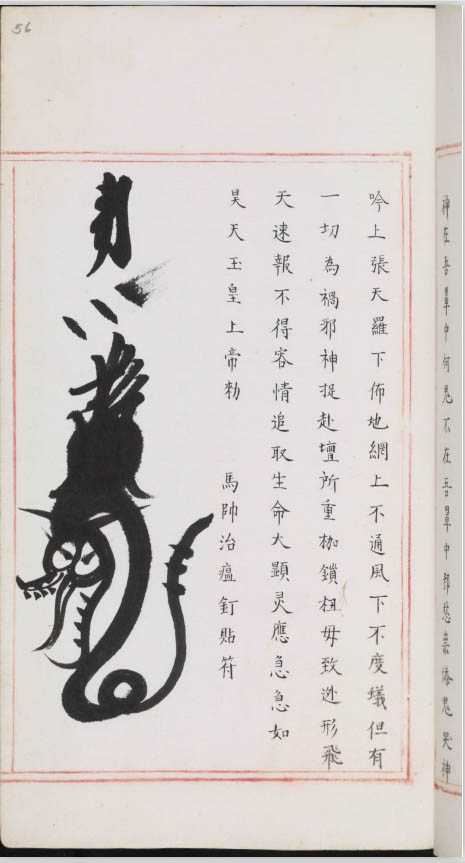 神在吾罩中何鬼不在吾罩中邪愁鬼哭神
吟上張天羅下佈地網上不通風下不度蟻但有
一切為禍邪神捉赴壇所重枷鎖杻毋致迯形飛
天速報不得容情追取生命大顯灵應急急如
昊天玉皇上帝勅
馬帥治瘟釘貼符
勅
56